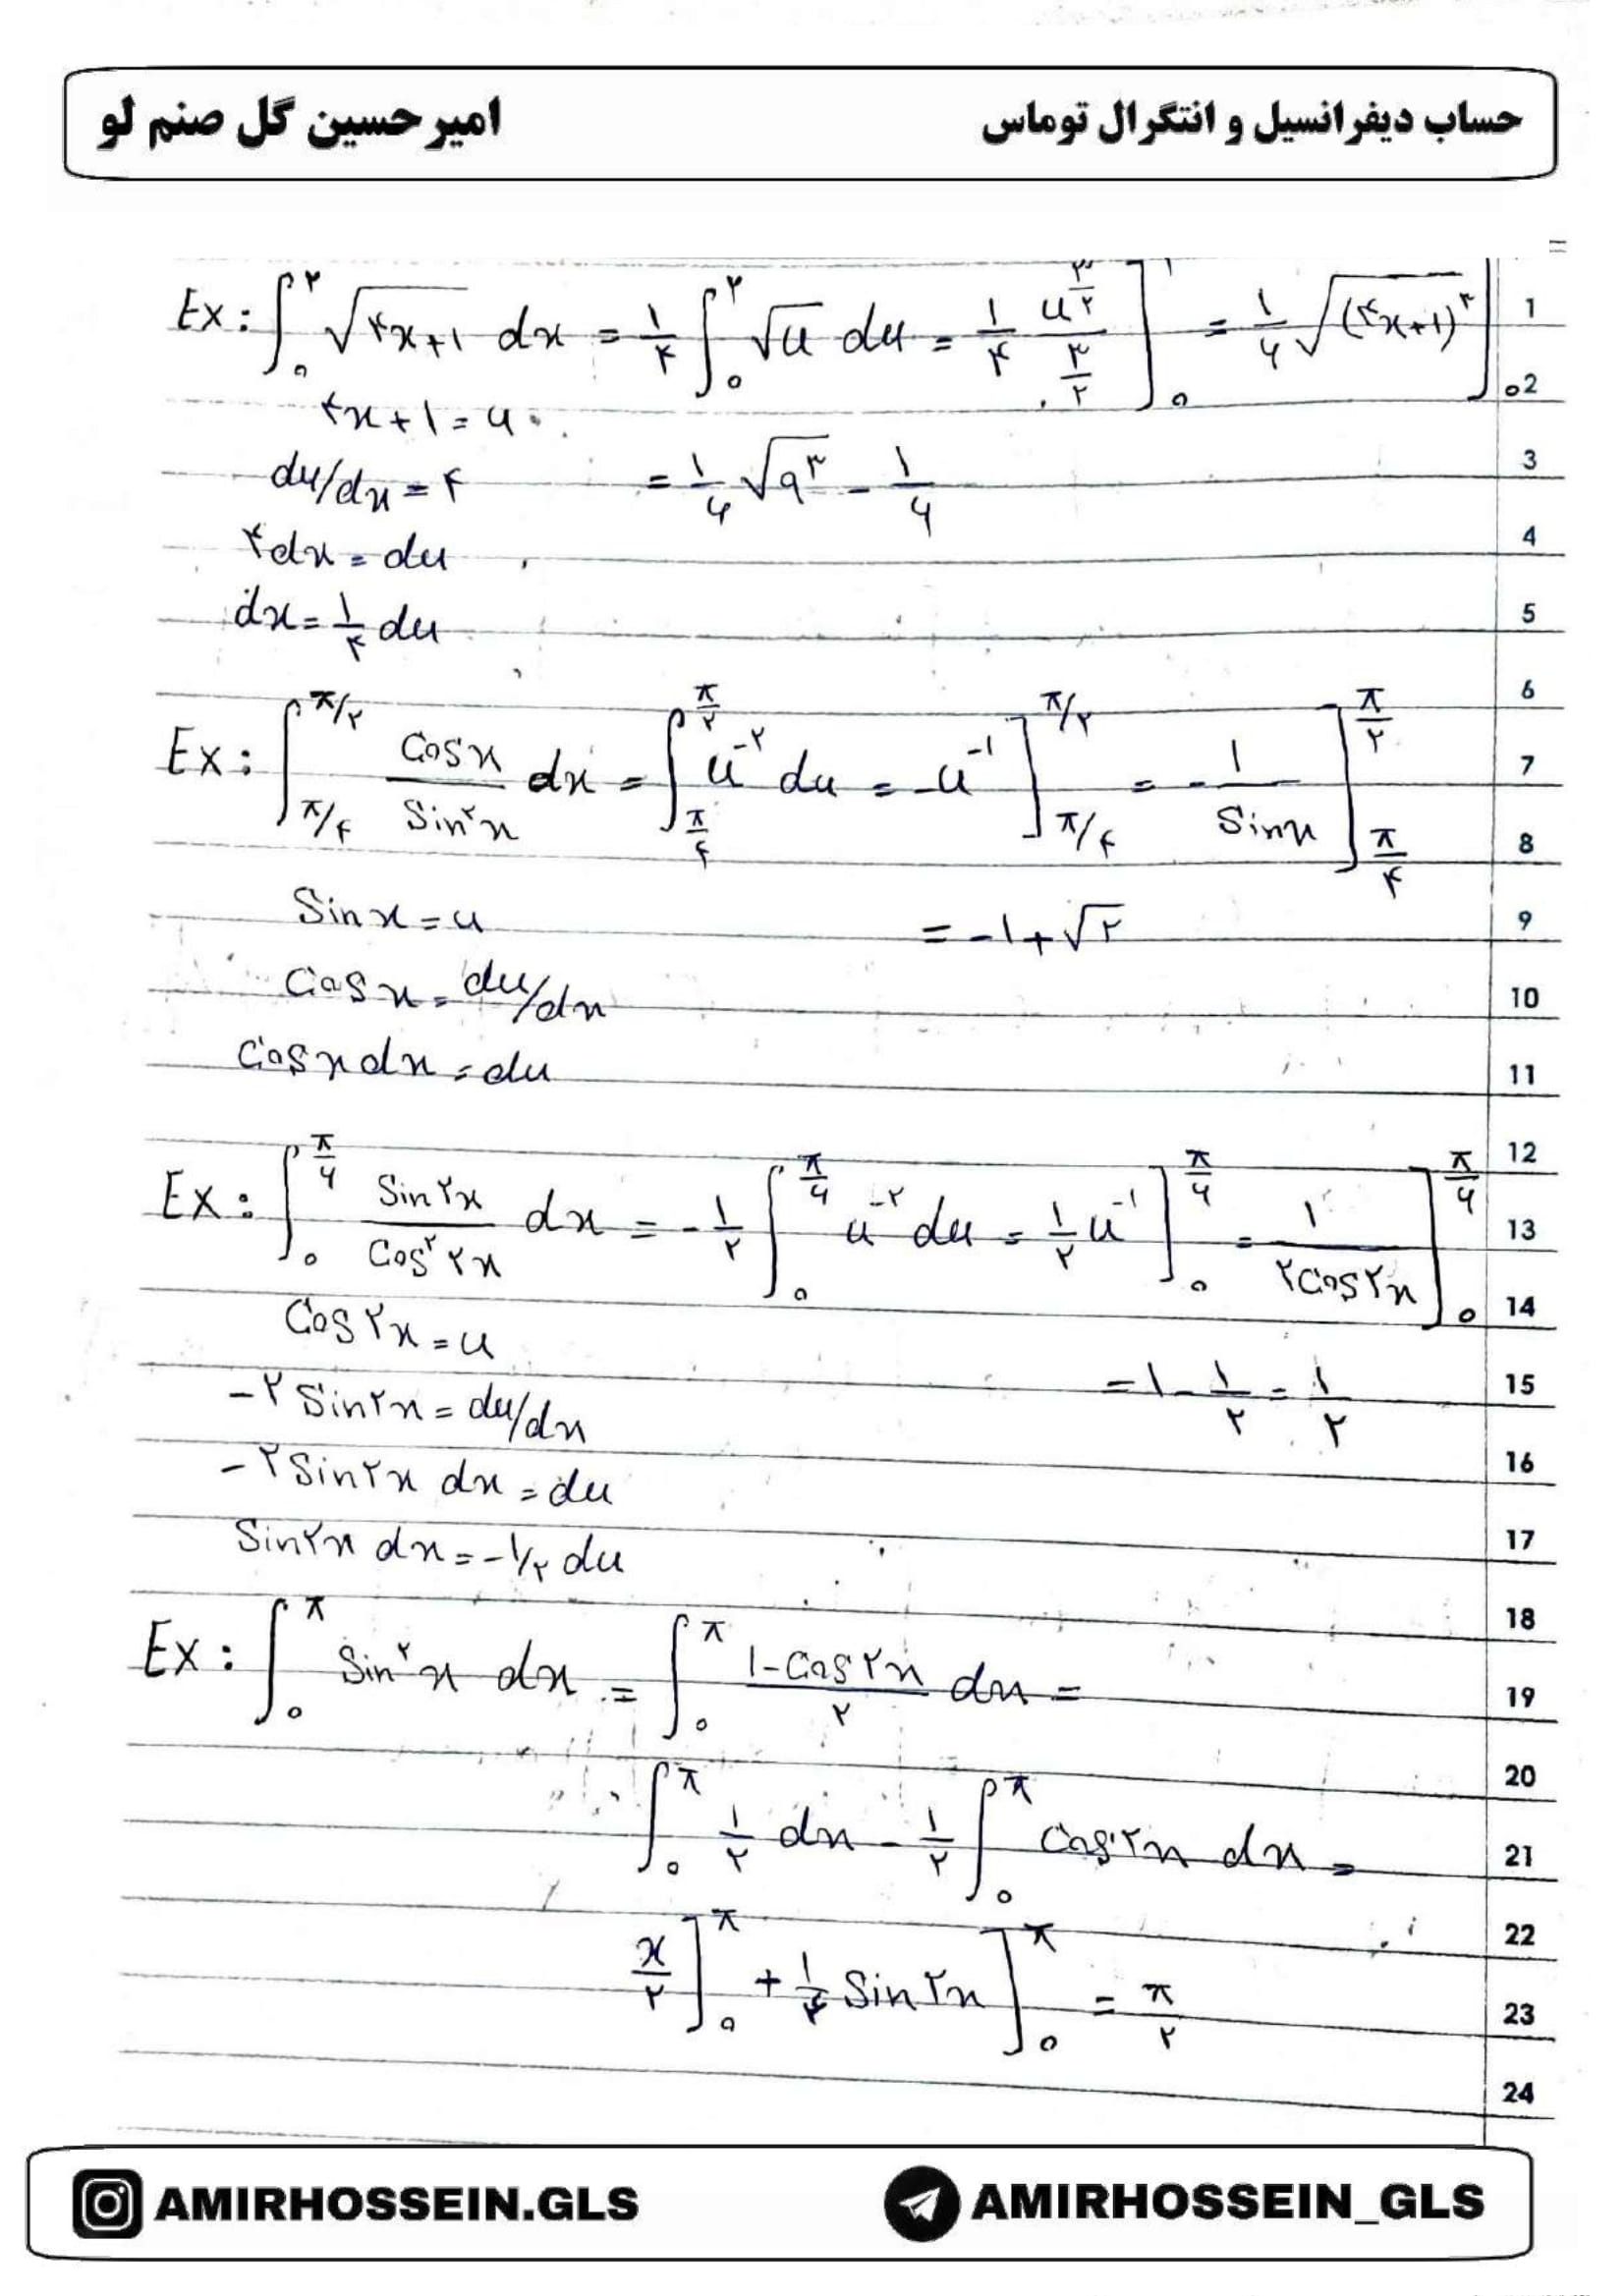 حساب دیفرانسیل و انتگرال توماس
امیرحسین گل صنم لو
Ex: ∫₀^۲ √(۴x+۱) dx = ۱/۴ ∫₀^۲ √u du = ۱/۴ u^(۳/۲)/(۳/۲) ]₀ = ۱/۶ √(۴x+۱)^۳ ]₀
۴x+۱=u
du/dx = ۴ = ۱/۶ √۹^۳ - ۱/۶
۴dx = du
dx = ۱/۴ du
Ex: ∫_{π/۴}^{π/۲} Cosx/Sin^۲x dx = ∫_{π/۴}^{π/۲} u^-۲ du = -u^-۱ ]_{π/۴}^{π/۲} = -۱/Sinx ]_{π/۴}^{π/۲}
Sinx = u = -۱+√۲
Cosx = du/dx
Cosx dx = du
Ex: ∫₀^{π/۶} Sin۲x/Cos^۲ ۲x dx = -۱/۲ ∫₀^{π/۶} u^-۲ du = ۱/۲ u^-۱ ]₀^{π/۶} = ۱/۲Cos۲x ]₀^{π/۶}
Cos۲x = u
-۲Sin۲x = du/dx = ۱ - ۱/۲ = ۱/۲
-۲Sin۲x dx = du
Sin۲x dx = -۱/۲ du
Ex: ∫₀^π Sin^۲x dx = ∫₀^π ۱-Cos۲x/۲ dx =
∫₀^π ۱/۲ dx - ۱/۲ ∫₀^π Cos۲x dx =
x/۲ ]₀^π + ۱/۴ Sin۲x ]₀^π = π/۲
1
2
3
4
5
6
7
8
9
10
11
12
13
14
15
16
17
18
19
20
21
22
23
24
AMIRHOSSEIN.GLS
AMIRHOSSEIN_GLS